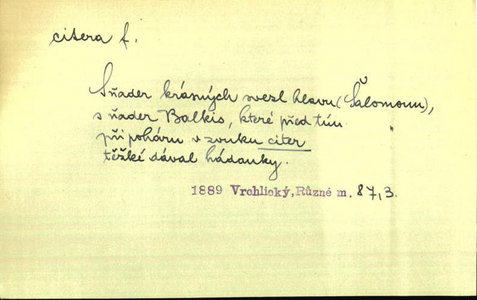 citera f.
S ňader krásných svezl hlavu (Šalomoun),
s ňader Balkis, které před tím
při poháru v zvuku citer
těžké dával hádanky.
1889 Vrchlický, Různé m. 87,3.